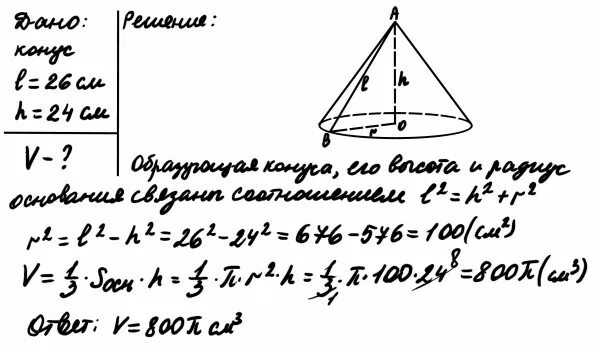 Дано:
конус
l = 26 см
h = 24 см
V - ?
Решение:
A
l
h
B
r
O
Образующая конуса, его высота и радиус
основания связаны соотношением l² = h² + r²
r² = l² - h² = 26² - 24² = 676 - 576 = 100 (см²)
V = 1/3 · Sосн · h = 1/3 · π · r² · h = 1/3 1 · π · 100 · 24 8 = 800π (см³)
Ответ: V = 800π см³